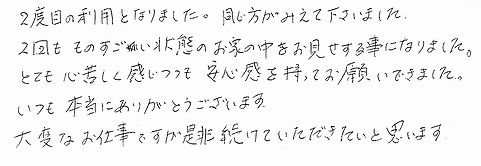 2度目の利用となりました。同じ方がみえて下さいました.
2回も ものすごい状態のお家の中をお見せする事になりました。
とても心苦しく感じつつも 安心感を持ってお願いできました。
いつも本当にありがとうございます
大変なお仕事ですが是非続けていただきたいと思います.